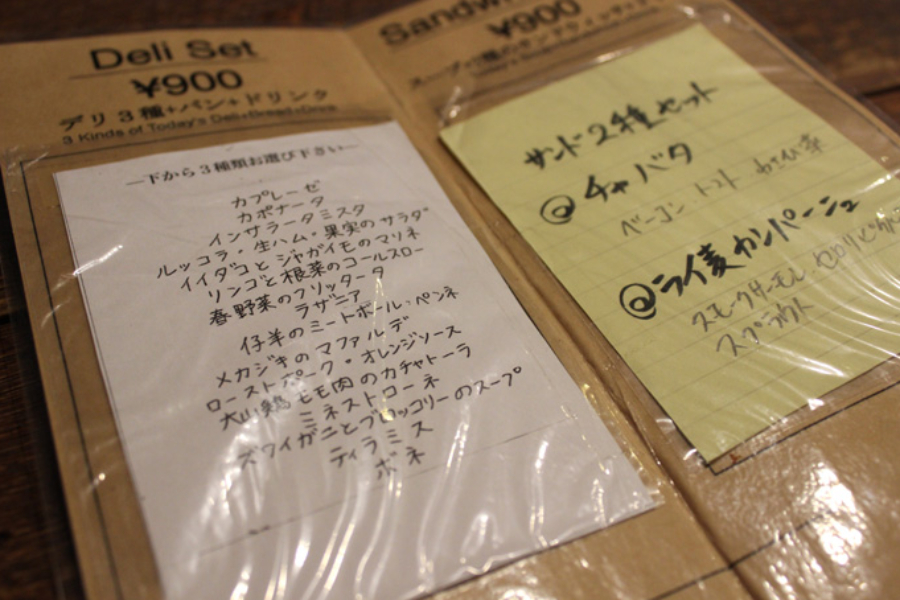 Deli Set
¥900
デリ3種+パン+ドリンク
3 Kinds of Today's Deli+Bread+Drink
―下から3種類お選び下さい―
カプレーゼ
カポナータ
インサラータミスタ
ルッコラ・生ハム・果実のサラダ
イイダコとジャガイモのマリネ
リンゴと根菜のコールスロー
春野菜のフリッタータ
ラザニア
仔羊のミートボール・ペンネ
メカジキのマファルデ
ローストポーク・オレンジソース
大山鶏モモ肉のカチャトーラ
ミネストローネ
ズワイガニとブロッコリーのスープ
ティラミス
ボネ
¥900
サンド2種セット
@チャバタ
ベーコン トマト わさび菜
@ライ麦カンパーニュ
スモークサーモン
スプラウト